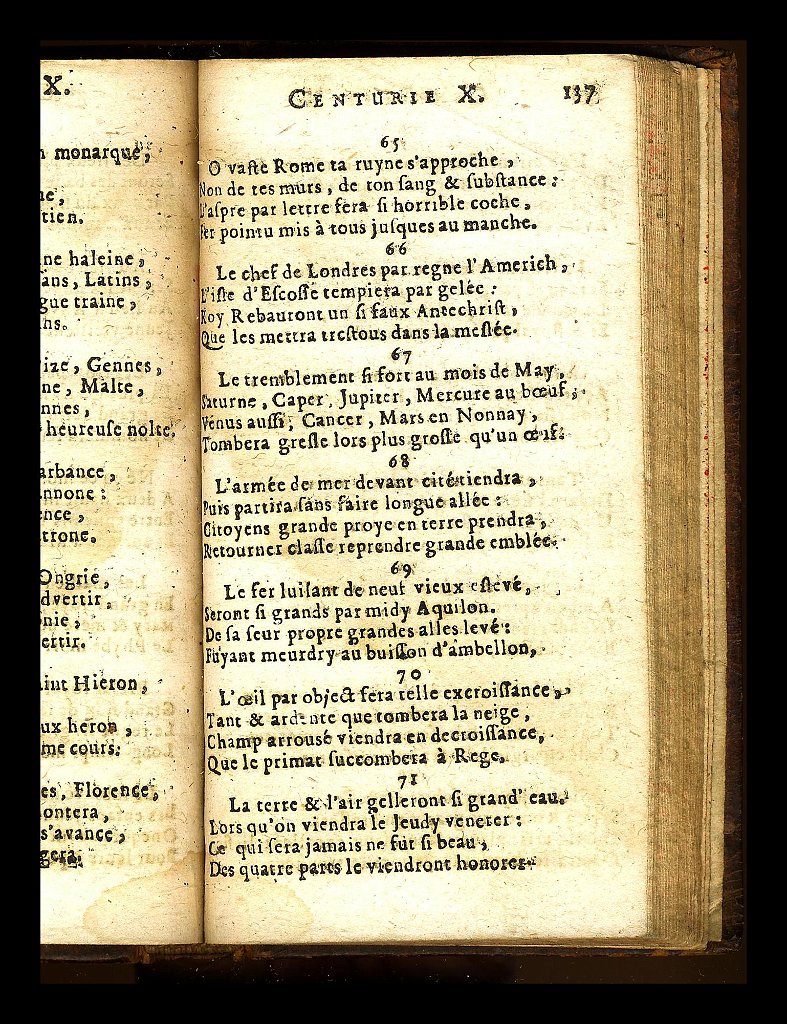 X.
monarque,
ne,
tien.
ne haleine,
ans, Latins,
gue traine,
ns.
ize, Gennes,
ne, Malte,
nnes,
heureuse nolte.
arbance,
nnone:
ence,
trone.
Ongrie,
dvertir,
nie,
ertir.
aint Hieron,
ux heron,
me cours.
es, Florence,
ontera,
s'avance,
gera.
CENTURIE X. 137
65
O vaſte Rome ta ruyne s'approche,
Non de tes murs, de ton ſang & ſubſtance:
L'aſpre par lettre fera ſi horrible coche,
Fer pointu mis à tous juſques au manche.
66
Le chef de Londres par regne l'Americh,
L'iſle d'Eſcoſſe tempiera par gelée:
Roy Rebauront un ſi faux Antechriſt,
Que les mettra treſtous dans la meſlée.
67
Le tremblement ſi fort au mois de May,
Saturne, Caper, Jupiter, Mercure au bœuf;
Venus auſſi, Cancer, Mars en Nonnay,
Tombera greſſe lors plus groſſe qu'un œuf.
68
L'armée de mer devant cité tiendra,
Puis partira ſans faire longue allée:
Citoyens grande proye en terre prendra,
Retourner claſſe reprendre grande emblée.
69
Le fer luiſant de neuf vieux eſlevé,
Seront ſi grands par midy Aquilon.
De ſa ſeur propre grandes alles levé:
Fuyant meurdry au buiſſon d'ambellon,
70
L'œil par object fera telle excroiſſance,
Tant & ardente que tombera la neige,
Champ arrousé viendra en decroiſſance,
Que le primat ſuccombera à Rege.
71
La terre & l'air gelleront ſi grand' eau.
Lors qu'on viendra le Jeudy venerer:
Ce qui ſera jamais ne fut ſi beau,
Des quatre parts le viendront honorer.